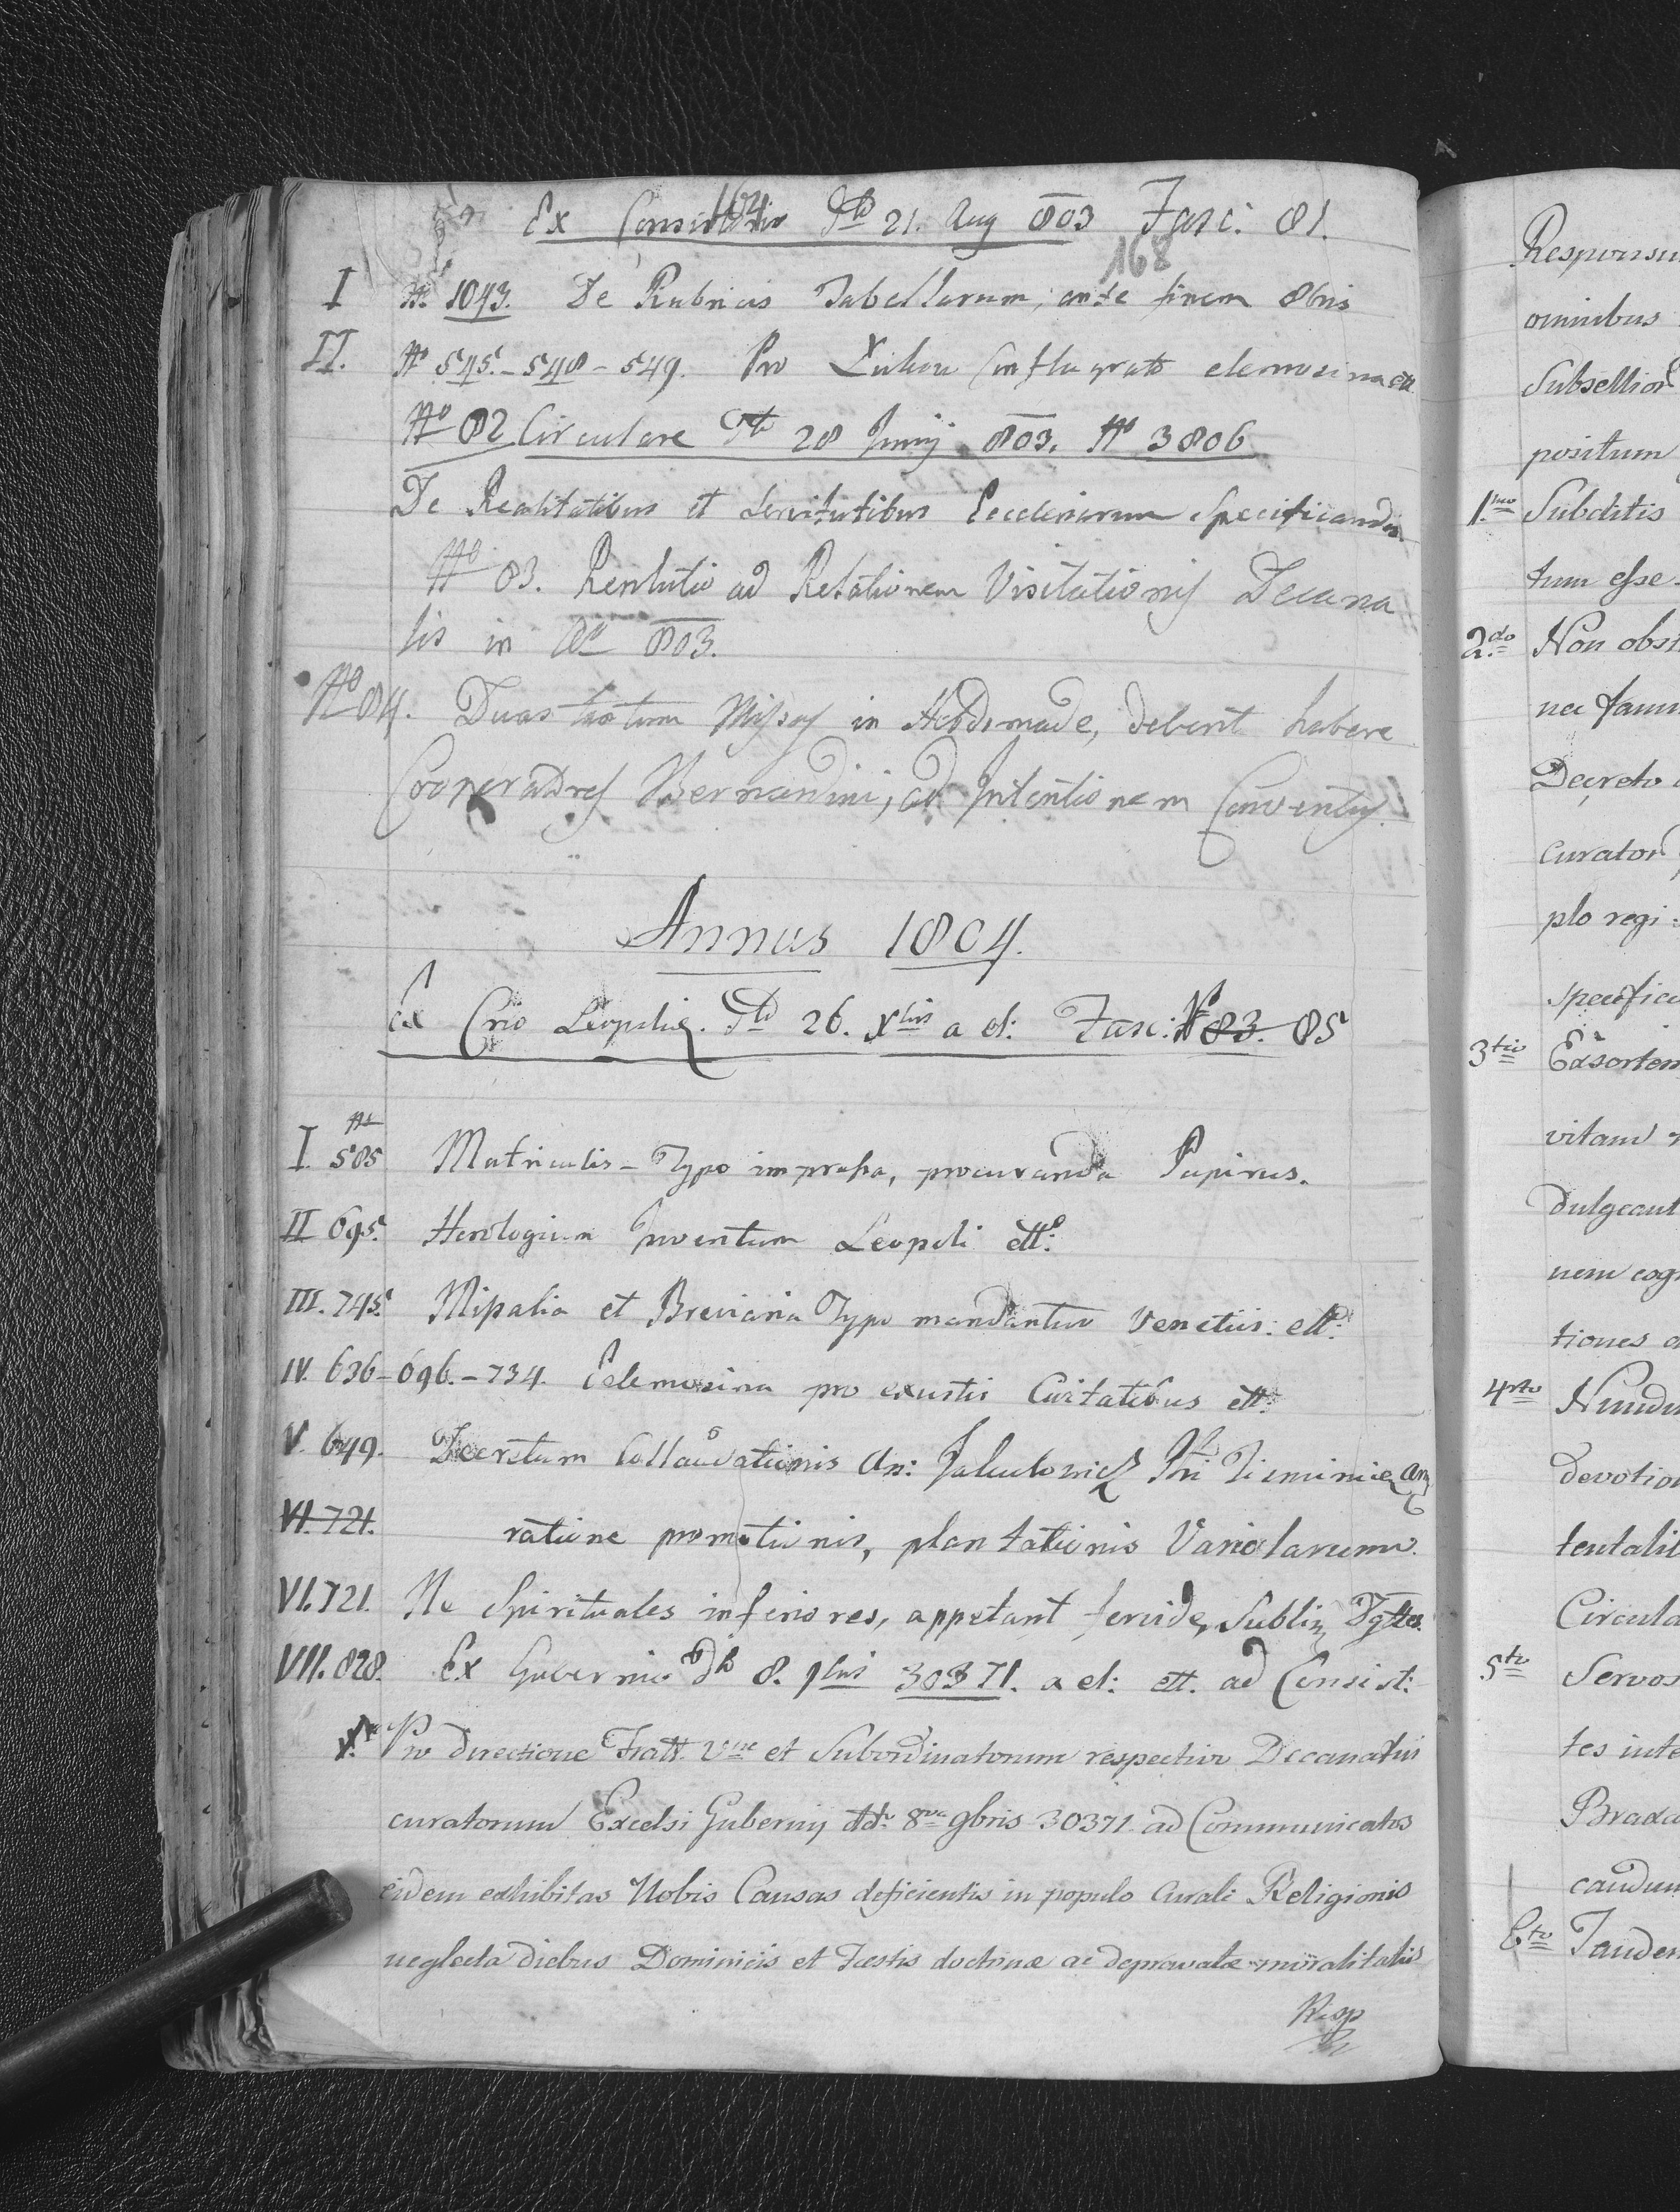 164
Ex Consistorio Dto 21. Aug 803 Fasc: 81.
168
I No 1043. De Rubricis Tabellarum, ante finem 8bris
II. No 545.-548-549. Pro conflagrato elemosina
No 82 Circulare Dto 28 Junij 803. No 3806
De Realitatibus et Servitutibus Ecclesiarum Specificandis
No 83. Resolutio ad Relationem Visitationis Decana
lis in Ao 803.
No 84. Duas Missas in Hebdomade, debent habere
Cooperatores Bernardini, ad Intentionem Conventus.
Annus 1804.
Ex Crio Leopoli. Dto 26. Xbris a el: Fasc: No 83. 85
No
I. 585 Matriculis - Typo impressa, procuranda Papirus.
II 695. Horologium Inventum Leopoli ett:
III. 745. Missalia et Breviaria Typo mandantur Venetiis: ett:
IV. 636-696.-734. Eelemosina pro exustis Civitatibus ett:
V. 649. Decretum Collaudationis An:
VI. 721. ratione promotionis, plantationis Variolarum.
VI. 721. Ne Spirituales inferiores, appetant
VII. 828. Ex Gubernio Dto 8. 9bris 30371. a el: ett. ad Consist:
Pro directione Fratt. Vrae et Subordinatorum respective Decanatus
curatorum Excelsi Gubernij ddo 8va 9bris 30371 ad Communicatas
eidem exhibitas Nobis Causas deficientis in populo Curali Religionis
neglecta diebus Dominicis et Festis doctrinae ac depravatae moralitatis
Resp
Responsu
omnibus
Subsellior
positum
1mo Subditis
tum esse
2do Non obst
nec fam
Decreto
Curator
plo regi
specifica
3tio Exsorten
vitam
dulgeant
nem cog
tiones
4rto Nundi
devotion
tentalit
Circula
5to Servos
tes inte
Braxa
candum
6to Tandem